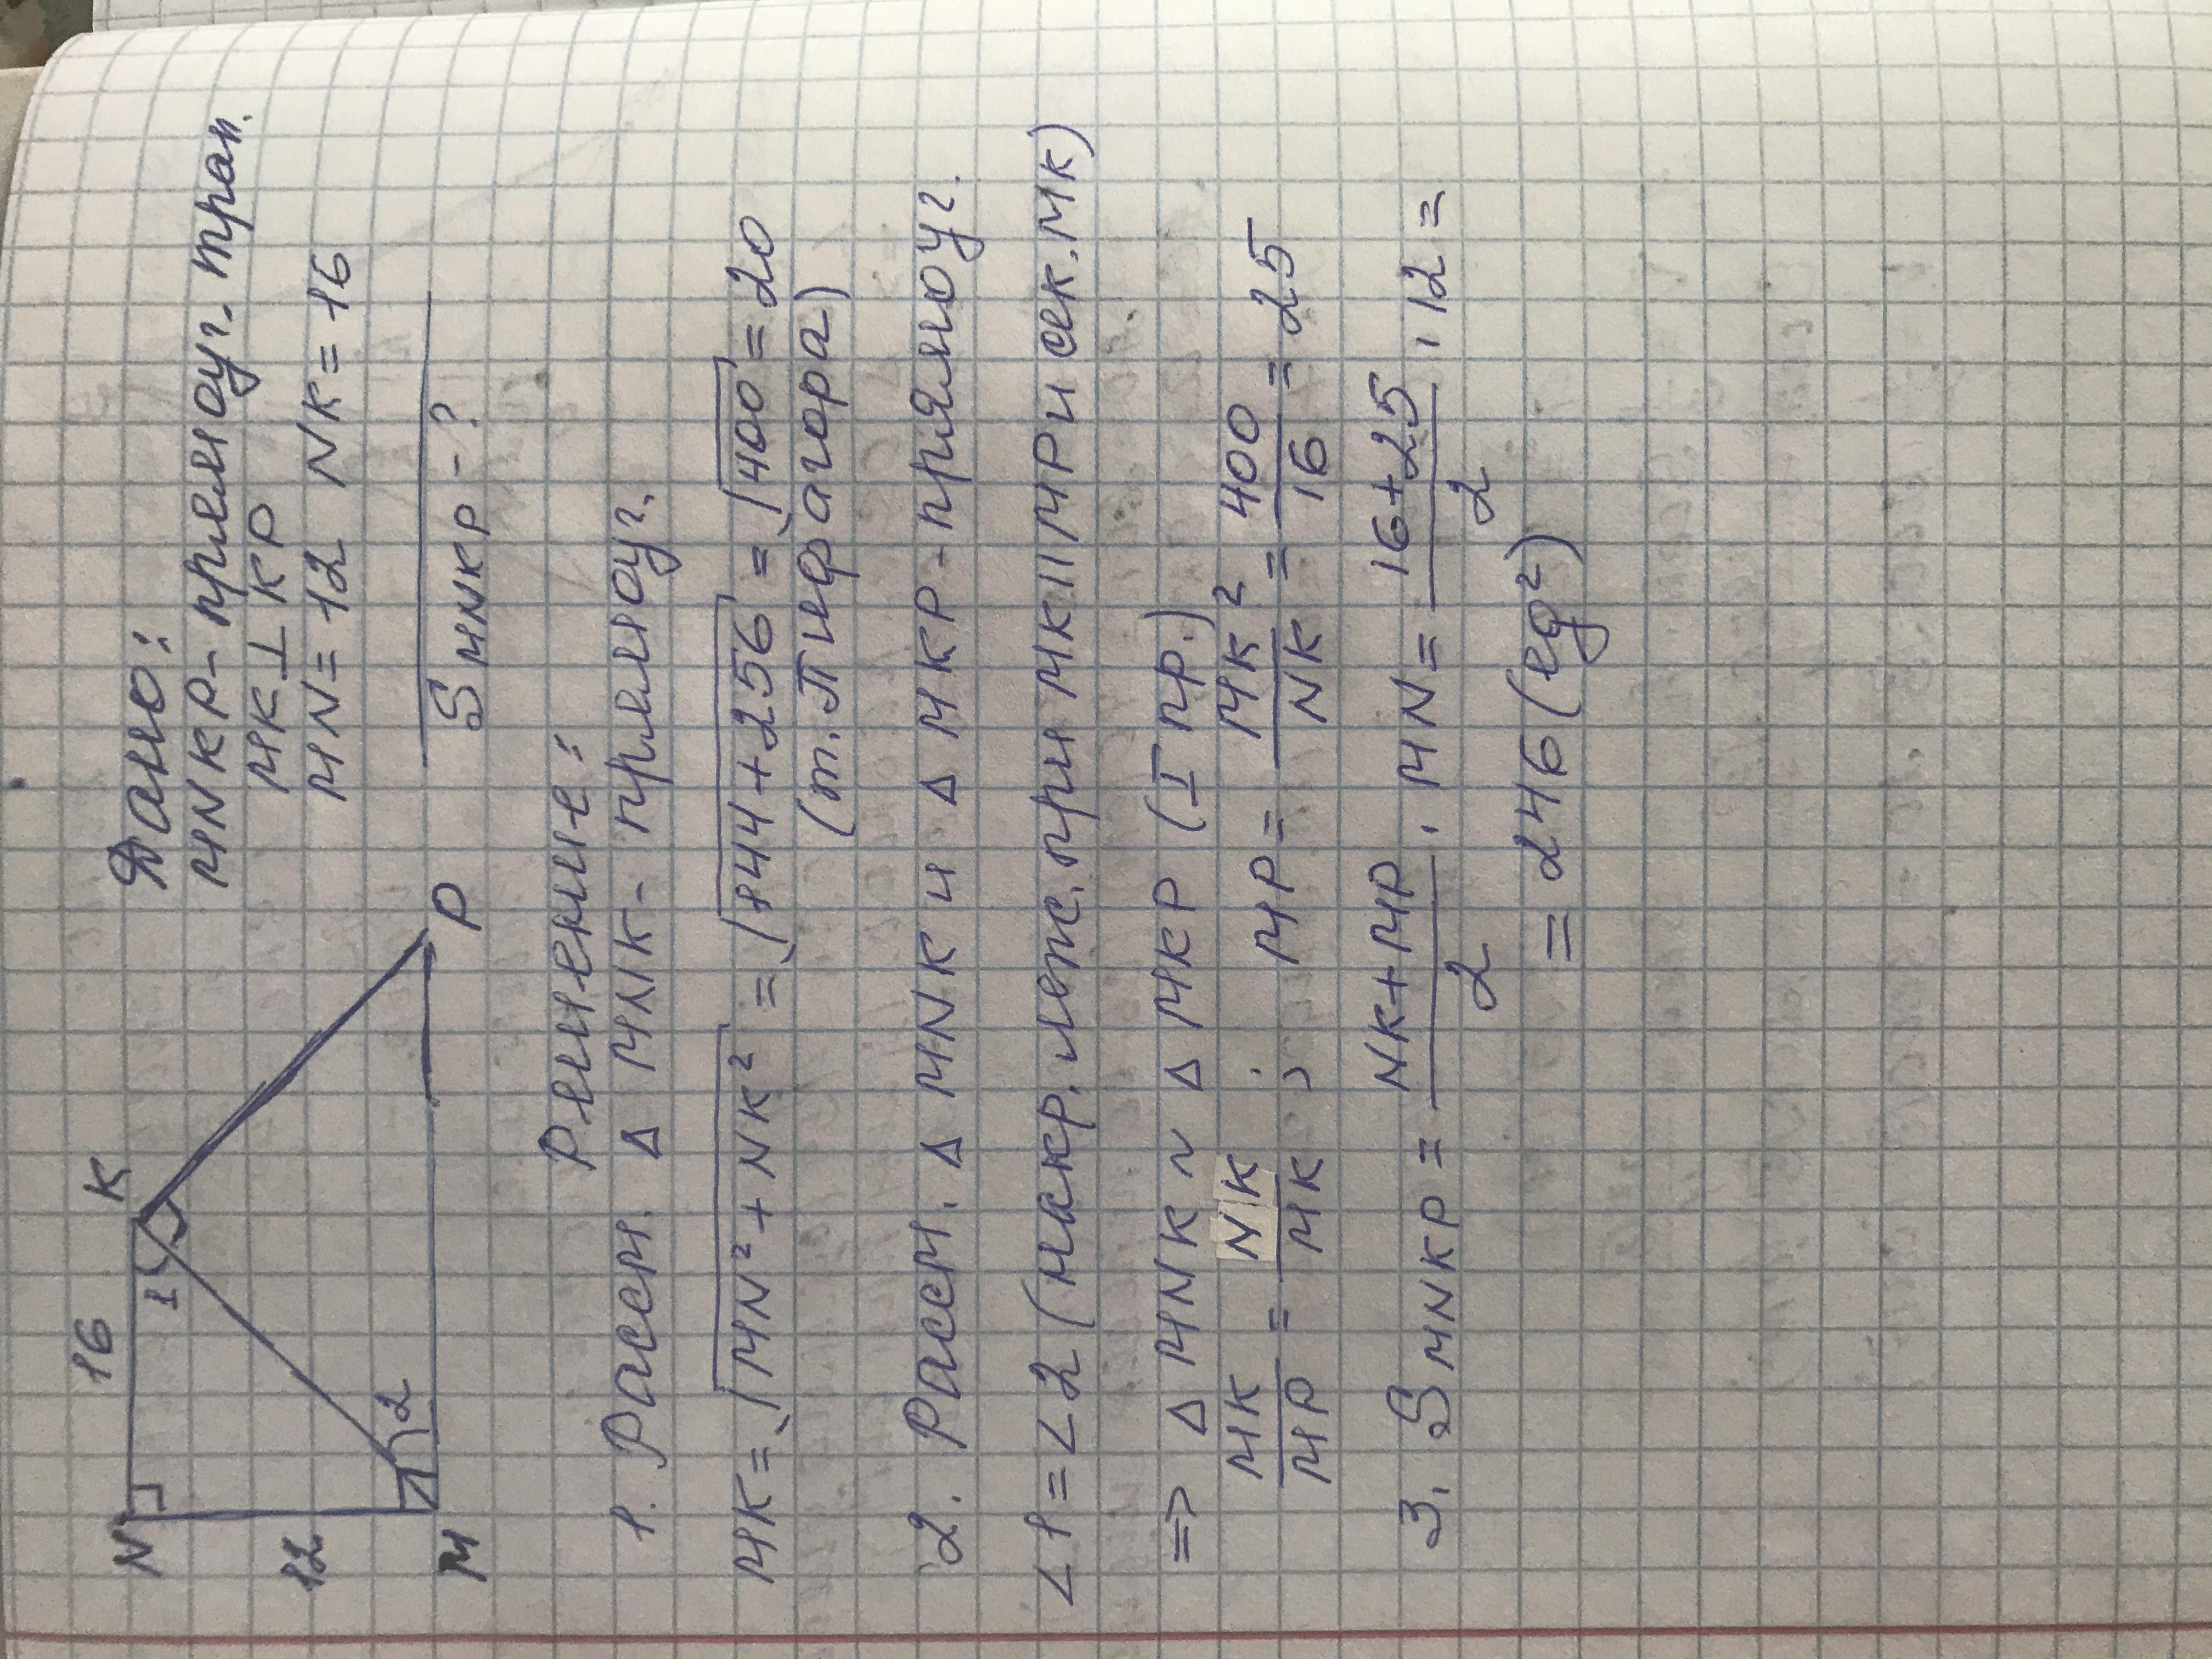 N 16 K
12 1
2
M P
Дано:
MNKP - прямоуг. трап.
MK ⊥ KP
MN = 12 NK = 16
S MNKP - ?
Решение:
1. Рассм. Δ MNK - прямоуг.
MK = √MN² + NK² = √144 + 256 = √400 = 20
(т. Пифагора)
2. Рассм. Δ MNK и Δ MKP - прямоуг.
∠1 = ∠2 (накр. леж. при MK II MP и сек. MK)
=> Δ MNK ~ Δ MKP (I пр.)
MK/MP = NK/MK ; MP = MK²/NK = 400/16 = 25
3. S MNKP = NK + MP/2 · MN = 16 + 25/2 · 12 =
= 246 (ед²)